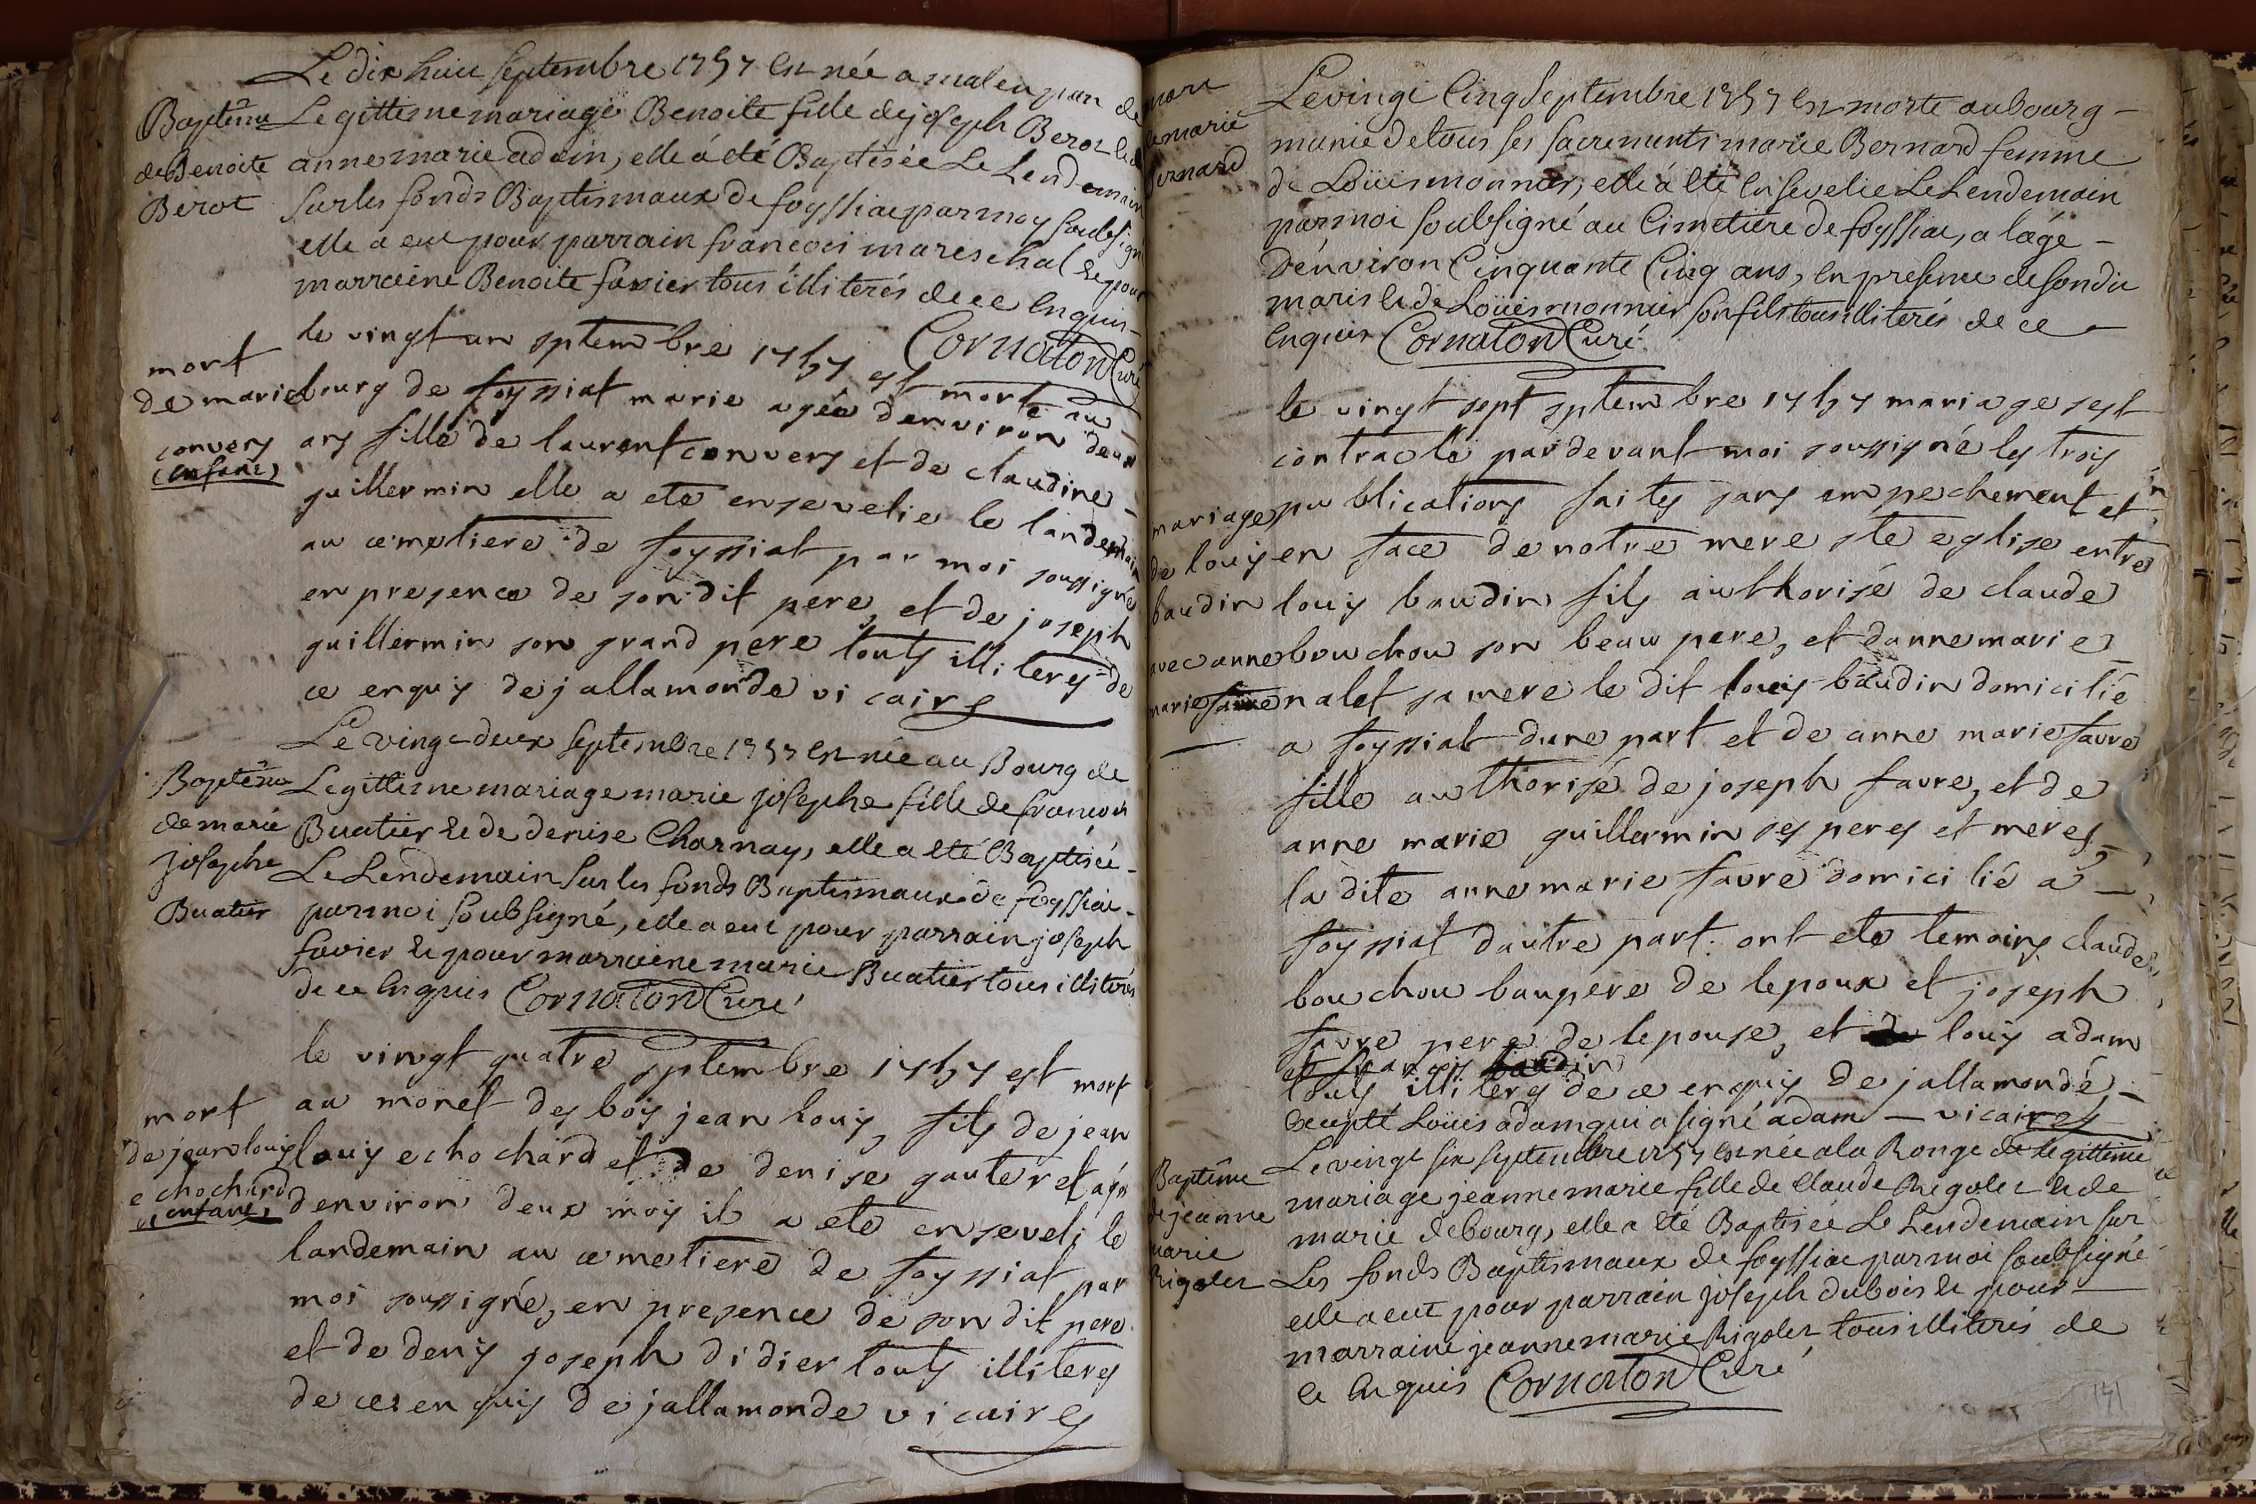 Le dix huit septembre 1757 est née a malenpan de
Baptême
de Benoite
Berot
Legittisme mariage Benoite fille de joseph Berot et de
anne marie adain, elle á été Baptisée Le Lendemain
sur les fonds Baptismaux de foyssiac par moy soubsigné
elle a eut pour parrain francois mareschal et pour
marraine Benoite favier tous illiterés de ce Enquis
Cornaton Curé
mort
de marie
convers
(enfant)
le vingt un septembre 1757 est morte au
bourg de foyssiat marie agée denviron deux
ans fille de laurent convers et de claudine
guillermin elle a eté ensevelie le landemain
au cemetiere de foyssiat par moi soussigné
en presence de son dit pere, et de joseph
guillermin son grand pere touts illiterés de
ce enquis dejallamonde vicaire
Baptême
de marie
Josephe
Buatier
Le vingt-deux septembre 1757 est née au Bourg de
Legittisme mariage marie josephe fille de francois
Buatier et de denise Charnay, elle a eté Baptisée
Le Lendemain sur les fonds Baptismaux de foyssiac
par moi soubsigné, elle a eut pour parrain joseph
favier et pour marraine marie Buatier tous illiterés
de ce Enquis Cornaton Curé
mort
de jean louis
echochard
(enfant)
le vingt quatre septembre 1757 est mort
au morel des bois jean louis, fils de jean
louis echochard et de denise gauteret agé
denviron deux mois il a eté enseveli le
landemain au cemetiere de foyssiat par
moi soussigné, en presence de son dit pere
et de denis joseph didier touts illiterés
de ce enquis dejallamonde vicaire
mort
de marie
Bernard
Le vingt Cinq septembre 1757 est morte au bourg
munie de tous ses sacrements marie Bernard femme
de Loüis monnier, elle á eté Ensevelie Le Lendemain
par moi soubsigné au Cimetiere de foyssiac, a lágé
dénviron Cinquante Cinq ans, en presence de son dit
maris et de Loüis monnier son fils tous illiterés de ce
Enquis Cornaton Curé
mariage
de louis
baudin
avec anne
marie favre
le vingt sept septembre 1757 mariage sest
contracté pardevant moi soussigné les trois
publications faites sans empechement et
en face de notre mere ste eglise entre
louis baudin fils authorisé de claude
bouchou son beau pere, et danne marie
nalet sa mere le dit louis baudin domicilié
a foyssiat dune part et de anne marie favre
fille authorisé de joseph favre, et de
anne marie guillermin ses peres et meres,
la dite anne marie favre domicilié a
foyssiat dautre part. ont eté temoins claude
bouchou baupere de lepoux et joseph
favre pere de lepouse, et louis adam
et francois baudin
touts illiterés de ce enquis dejallamondé
Excepté Loüis adam qui a signé adam — vicaire
Baptême
de jeanne
marie
Rigolet
Le vingt six septembre 1757 est née a la Ronge de legittime
mariage jeanne marie fille de Claude Rigolet et de
marie debourg, elle a eté Baptisée Le Lendemain sur
Les fonds Baptismaux de foyssiac par moi soubsigné
elle a eut pour parrain joseph dubois et pour
marraine jeanne marie Rigolet tous illiterés de
ce Enquis Cornaton Curé